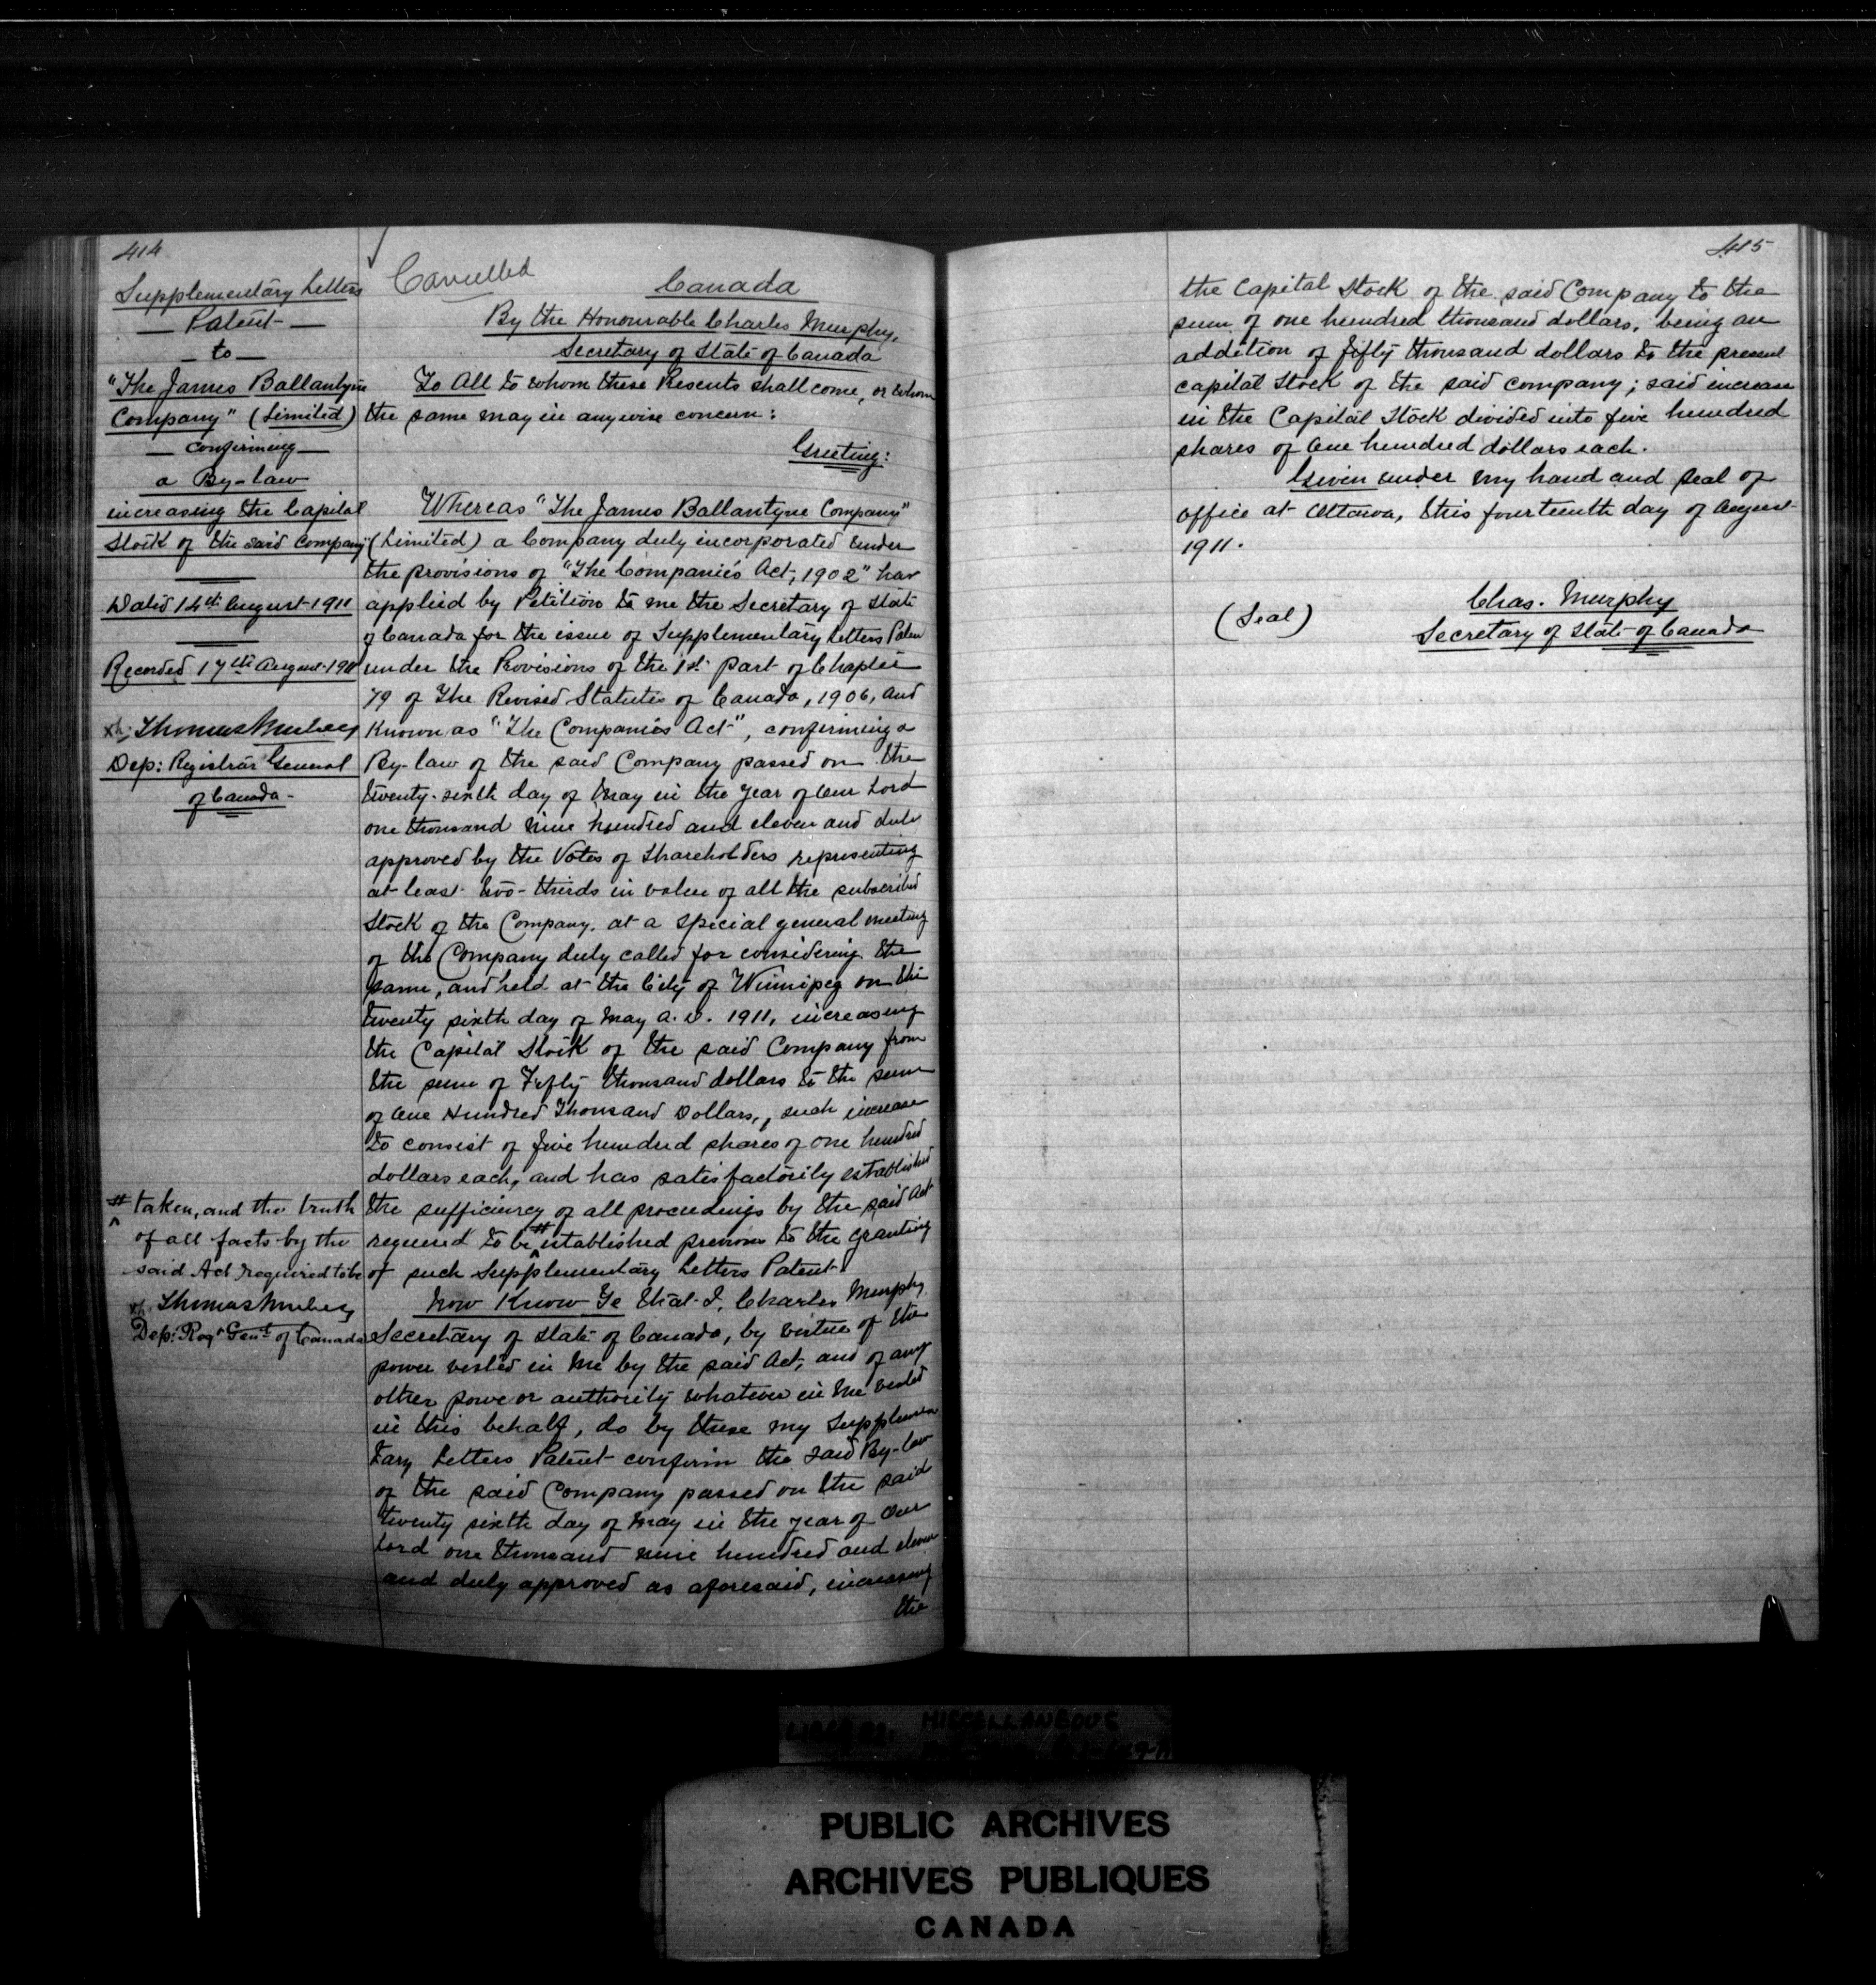 414
Supplementary Letters
Patent
to
"The James Ballantyne
Company" (Limited)
confirming
a By-law
increasing the Capital
Stock of the said Company
Dated 14th August 1911
Recorded 17th August 1911
Thomas Mulvey
Dep: Registrar General
of Canada
# taken, and the truth
of all facts by the
said Act required to be
Thomas Mulvey
Dep: Regr Genl of Canada
Cancelled
Canada
By the Honourable Charles Murphy,
Secretary of State of Canada
To All to whom these Presents shall come, or whom
the same may in anywise concern:
Greeting:
Whereas "The James Ballantyne Company"
(Limited) a Company duly incorporated under
the provisions of "The Companies Act, 1902" has
applied by Petition to me the Secretary of State
of Canada for the issue of Supplementary Letters Paten
under the Provisions of the 1st part of Chapter
79 of The Revised Statutes of Canada, 1906, and
known as "The Companies Act", confirming a
By-law of the said Company passed on the
twenty-sixth day of May in the year of Our Lord
one thousand nine hundred and eleven and duly
approved by the Votes of Shareholders representing
at least two-thirds in value of all the subscribed
Stock of the Company, at a special general meeting
of the Company duly called for considering the
same, and held at the City of Winnipeg on the
twenty sixth day of May A.D. 1911, increasing
the Capital Stock of the said Company from
the sum of Fifty thousand dollars to the sum
of One Hundred Thousand Dollars, such increase
to consist of five hundred shares of one hundred
dollars each, and has satisfactorily established
the sufficiency of all proceedings by the said Act
required to be # established previous to the granting
of such Supplementary Letters Patent.
Now Know Ye that I, Charles Murphy
Secretary of State of Canada, by virtue of the
power vested in me by the said Act, and of any
other power or authority whatever in me vested
in this behalf, do by these my Supplemen
tary Letters Patent confirm the said By-law
of the said Company passed on the said
twenty sixth day of May in the year of Our
Lord one thousand nine hundred and eleven
and duly approved as aforesaid, increasing
the
415
the Capital Stock of the said Company to the
sum of one hundred thousand dollars, being an
addition of fifty thousand dollars to the present
capital Stock of the said company; said increase
in the Capital Stock divided into five hundred
shares of One hundred dollars each.
Given under my hand and seal of
office at Ottawa, this fourteenth day of August
1911.
(Seal)
Chas. Murphy
Secretary of State of Canada
MISCELLANEOUS
PUBLIC ARCHIVES
ARCHIVES PUBLIQUES
CANADA